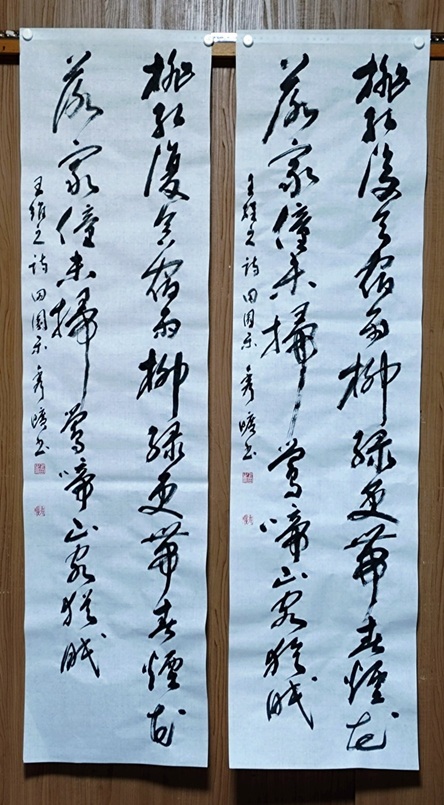 桃紅復含宿雨柳緑更帶春煙花
落家僮未掃鶯啼山客猶眠
王維之詩田園乐 秀书
桃紅復含宿雨柳緑更帶春煙花
落家僮未掃鶯啼山客猶眠
王維之詩田園乐 秀书